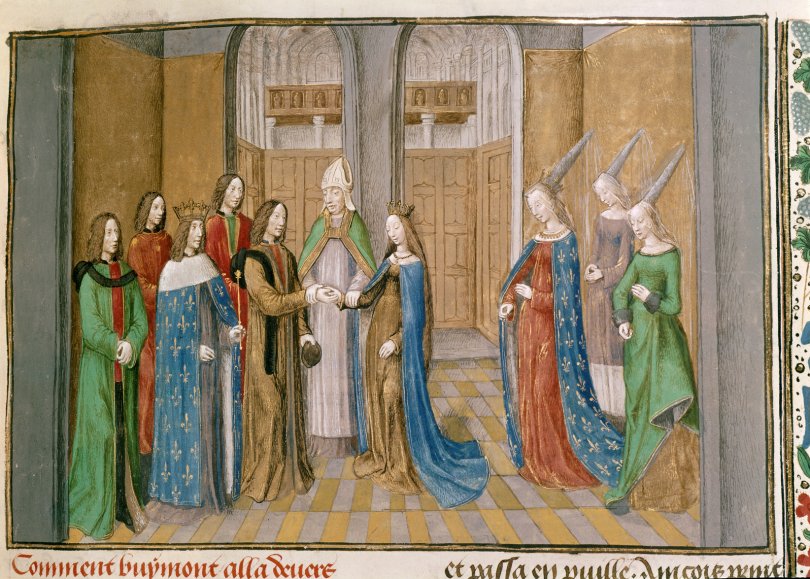 Comment buymont alla devers
et passa en puille. Ainçois print